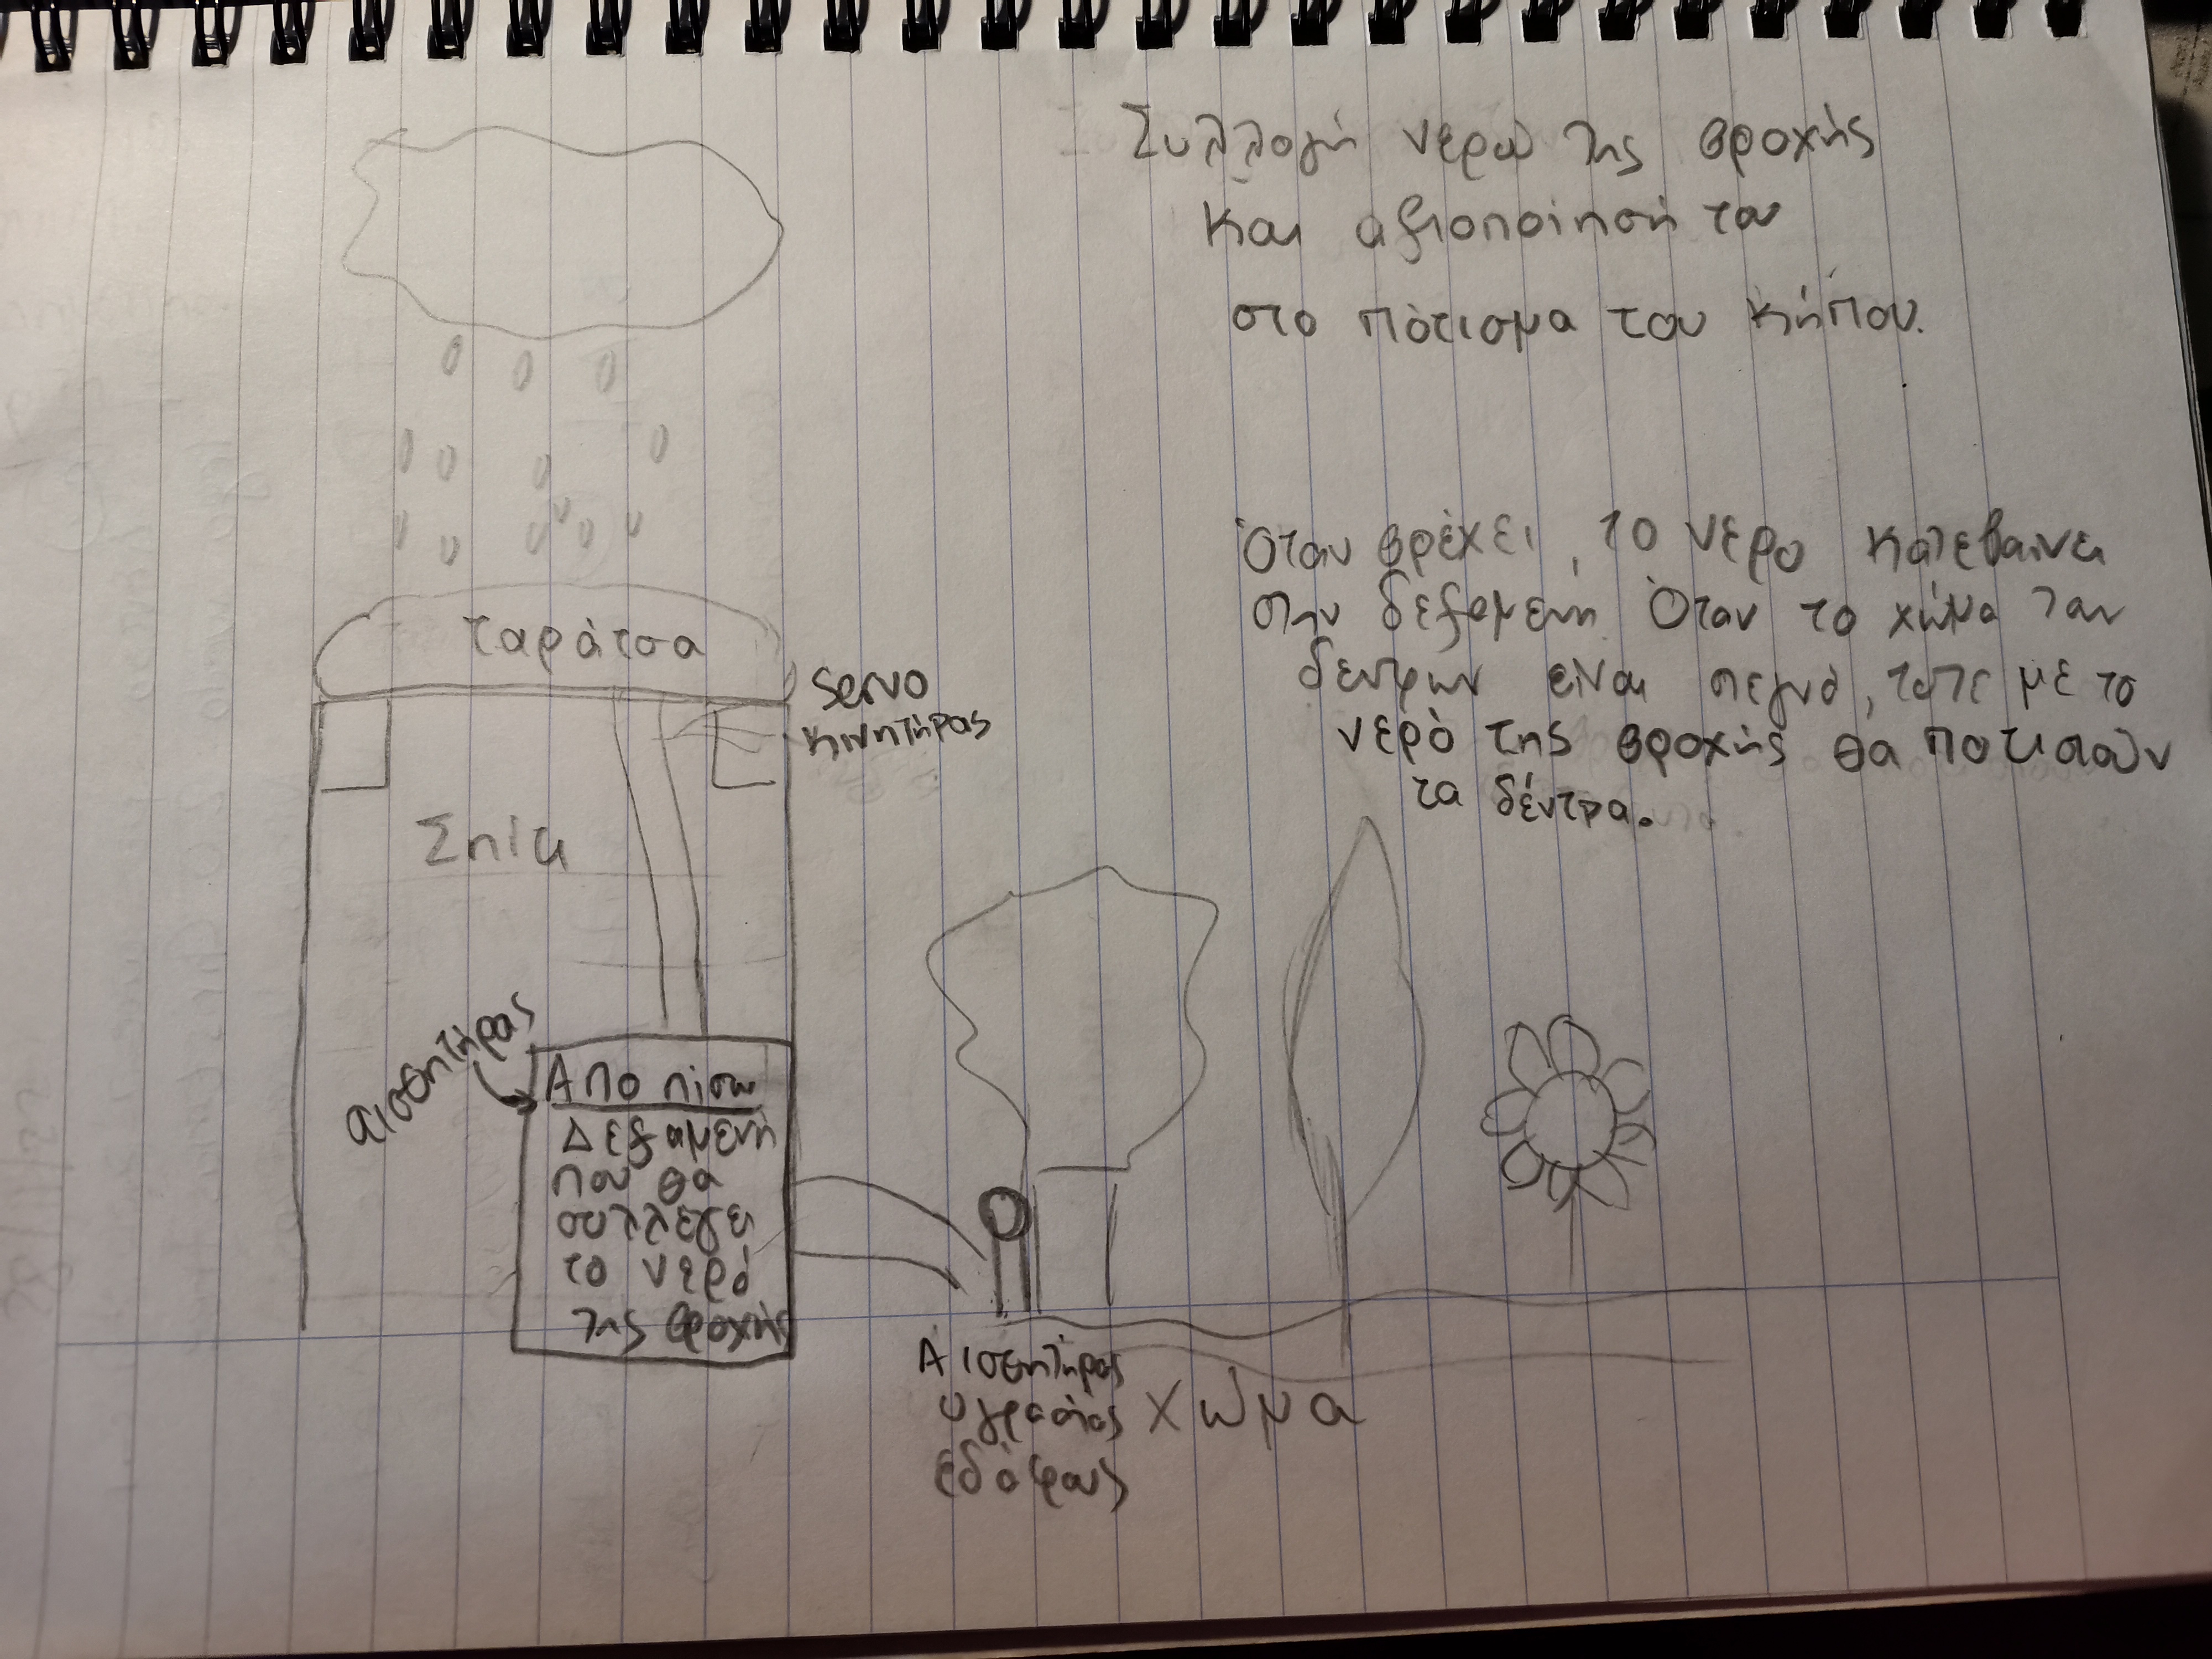 Συλλογή νερού της βροχής
και αξιοποίησή του
στο πότισμα του κήπου.
Όταν βρέχει, το νερο κατεβαινει
στην δεξαμενη Όταν το χώμα των
δεντρων είναι στεγνό, τοτε με το
νερό της βροχής θα ποτιστούν
τα δέντρα.
ταράτσα
servo
κινητήρας
Σπίτι
αισθητήρας
Απο πίσω
Δεξαμενή
που θα
συλλέγει
το νερό
της βροχής
Αισθητήρας
υγρασίας
εδάφους
χώμα